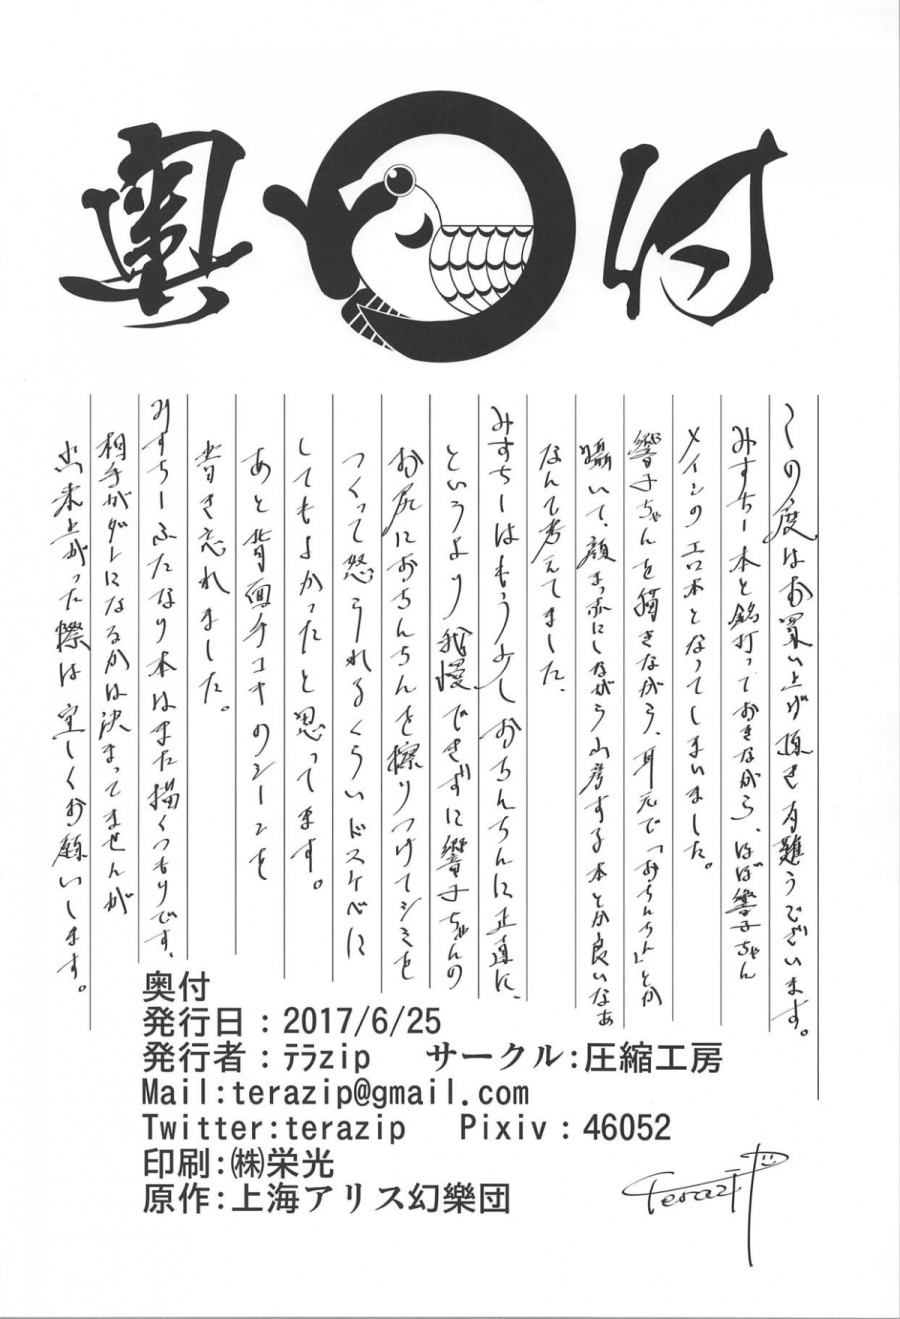 奥付
この度はお買い上げ頂き有難うございます。
みすちー本と銘打っておきながら、ほぼ響子ちゃん
メインのエロ本となってしまいました。
響子ちゃんを描きながら、耳元で「おちんちん」とか
囁いて、顔まっ赤にしながら山彦する本とか良いなぁ
なんて考えてました、
みすちーはもう少しおちんちんに正直に、
というより我慢できずに響子ちゃんの
お尻におちんちんを擦りつけてシミを
つくって怒られるくらいドスケベに
してもよかったと思ってます。
あと背面手コキのシーンを
書き忘れました。
みすちーふたなり本はまた描くつもりです、
相手がダレになるかは決まってませんが
出来上がった際は宜しくお願いします。
奥付
発行日：2017/6/25
発行者：ﾃﾗzip サークル:圧縮工房
Mail:terazip@gmail.com
Twitter:terazip Pixiv：46052
印刷:㈱栄光
原作:上海アリス幻樂団